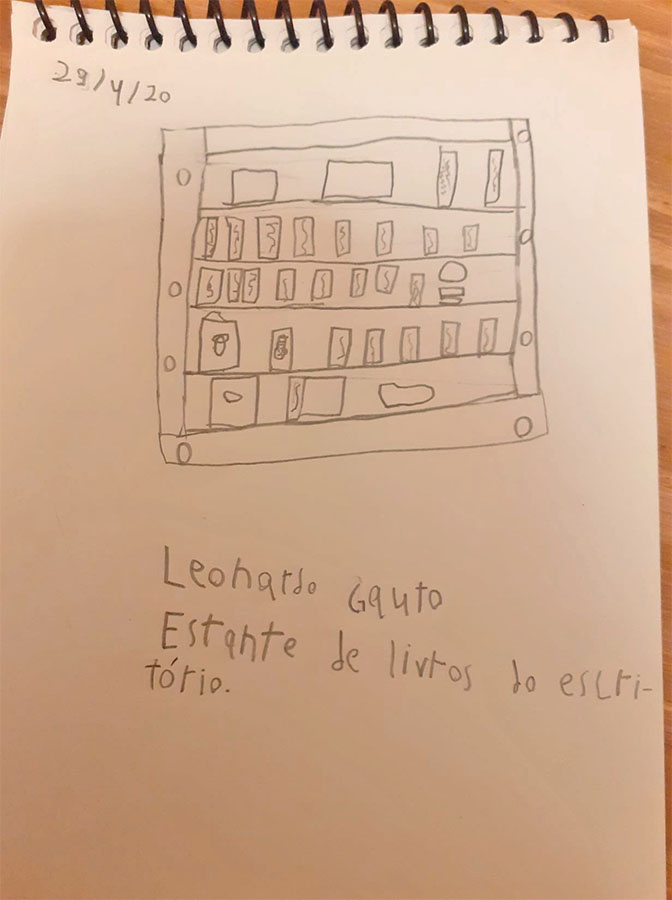 29/4/20
Leonardo Gauto
Estante de livros do escri-
tório.